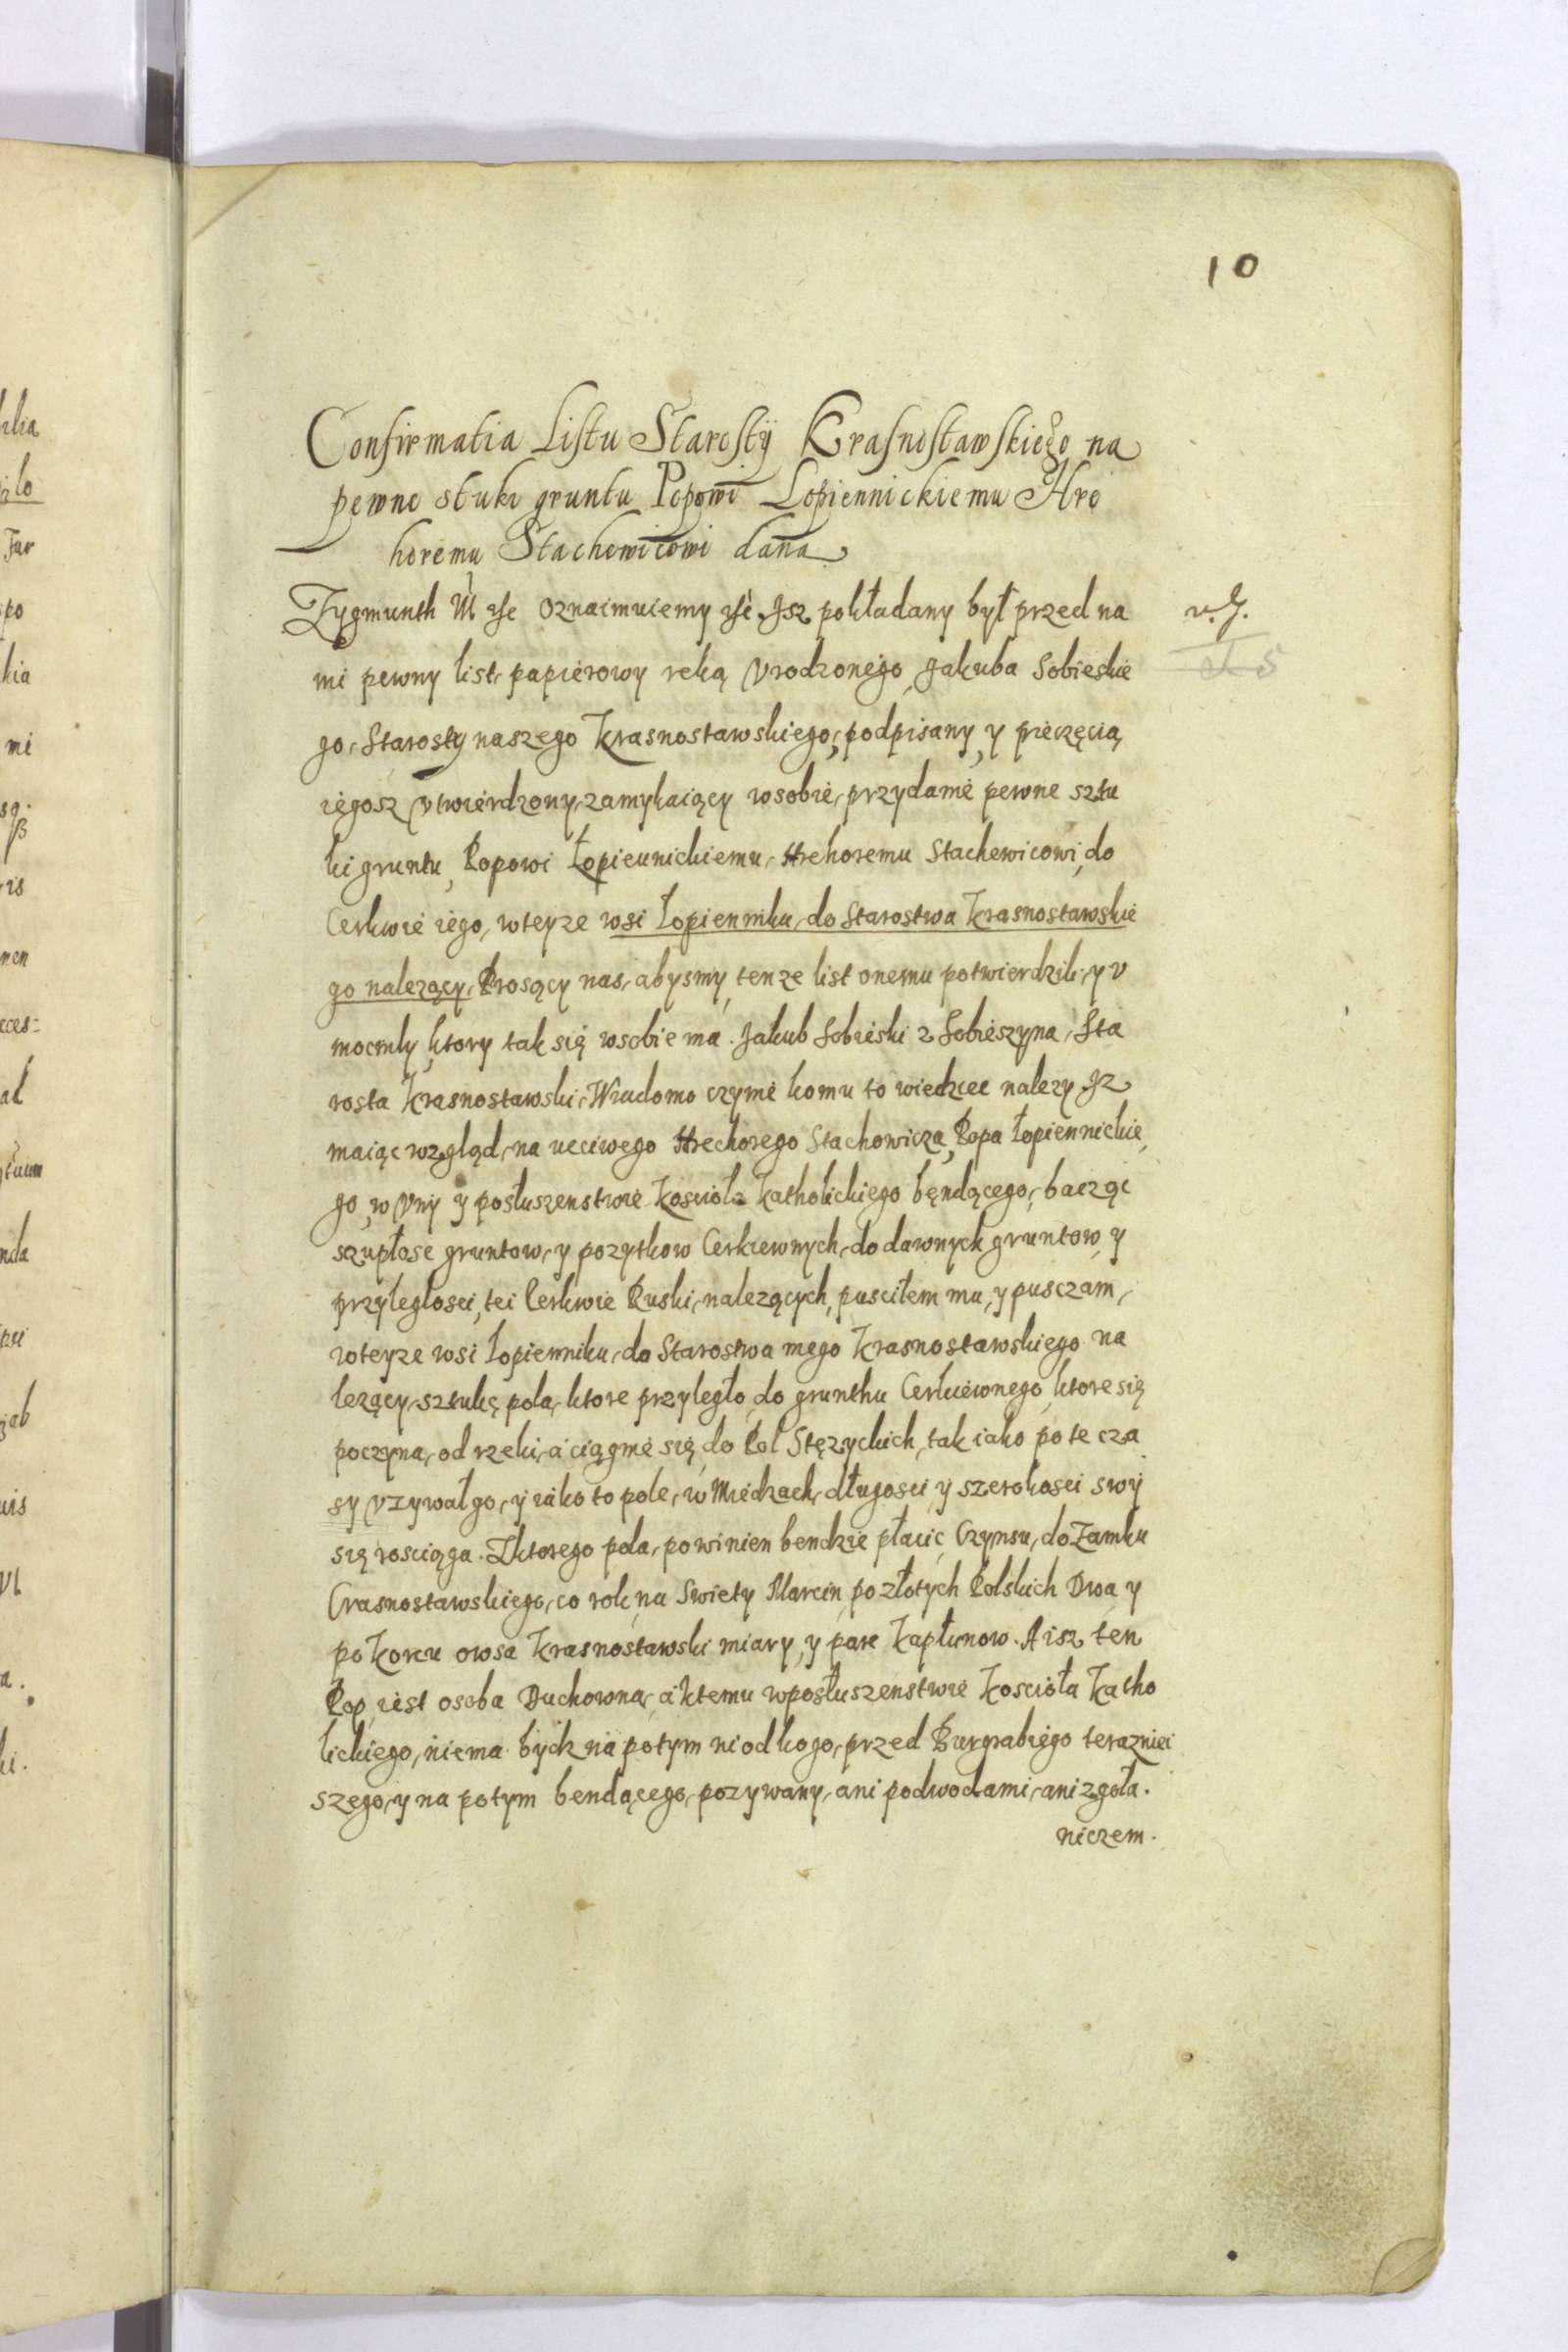 10
Confirmatia Listu Starosty Krasnostawskiego na
pewne stuki gruntu Popowi Lopiennickiemu Hre
horemu Stachowicowi dana
Zygmunth III etc Oznaimuiemy etc Jsz pokładany był przed na
mi pewny list papierowy ręką Vrodzonego Jakuba Sobieskie
go, Starosty naszego Krasnostawskiego, podpisany, y pieczęcią
iegosz vtwierdzony, zamykaiący wsobie, przydanie pewne sztu
ki gruntu, Popowi Łopieunickiemu, Hrehoremu Stachewicowi, do
Cerkwie iego, wteyze wsi Łopienniku, do Starostwa Krasnostawskie
go nalezący, Prosący nas, abysmy tenze list onemu potwierdzili, y v
mocnily, ktory tak się wsobie ma. Jakub Sobieski z Sobieszyna, Sta
rosta Krasnostawski, Wiadomo czynię komu to wiedziec nalezy Jz
maiąc wzgląd, na ucciwego Hrechorego Stachowicza, Popa Łopiennickie
go, w Vnij y posłuszenstwie Kosciola Katholickiego będącego, bacząc
szupłosc gruntow, y pozytkow Cerkiewnych, do dawnych gruntow, y
przyległosci, tei Cerkwie Ruski, nalezących, pusciłem mu, y pusczam,
wteyze wsi Łopienniku, do Starostwa mego Krasnostawskiego na
lezący, sztukę pola, ktore przyległo do grunthu Cerkiewnego, ktore się
poczyna, od rzeki, a ciągnie się do Pol Stęzyckich, tak iako po te cza
sy vzywał go, y iako to pole, w Miedzach, długosci y szerokosci swy
się rosciąga. Zktorego pola, powinien bendzie płacic Czynsu, do Zamku
Crasnostawskiego, co rok, na Swiety Marcin, po złotych Polskich Dwa y
po Korcu owsa Krasnostawski miary, y pare Kapłunow. A isz ten
Pop iest osoba Duchowna, a ktemu wposłuszenstwie Kosciola Katho
lickiego, niema bydz na potym ni od kogo, przed Burgrabiego terazniei
szego, y na potym bendącego, pozywany, ani podwodami, ani zgoła.
niczem.